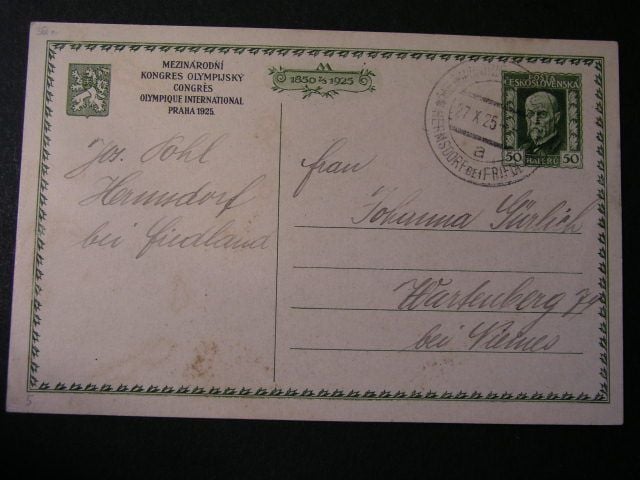 MEZINÁRODNÍ
KONGRES OLYMPIJSKÝ
CONGRÈS
OLYMPIQUE INTERNATIONAL
PRAHA 1925.
1850 1925
ČESKOSLOVENSKA
50 HALÉŘŮ 50
27.X.25
a
HERMSDORF BEI
Jos. Pohl
Hermsdorf
bei Friedland
Frau
Johanna Görlich
Wartenberg 71
bei Niemes
5